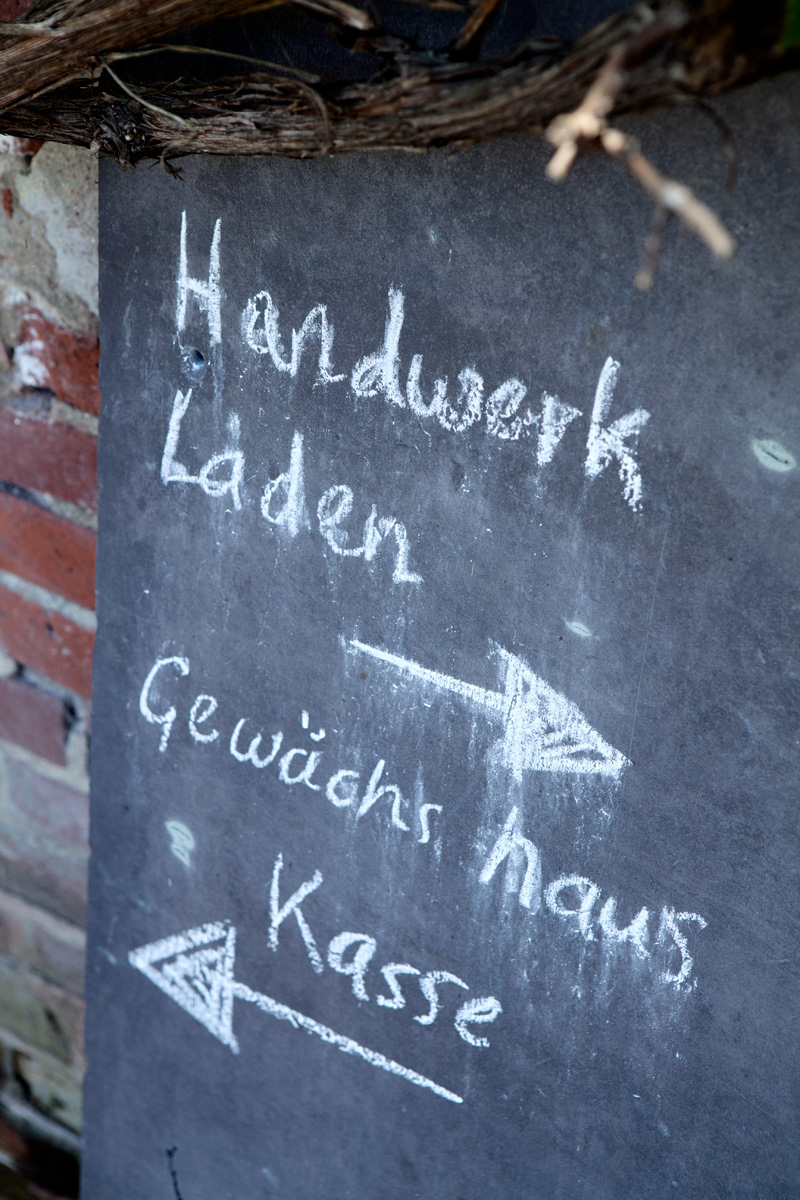 Handwerk
Laden
Gewächs haus
Kasse